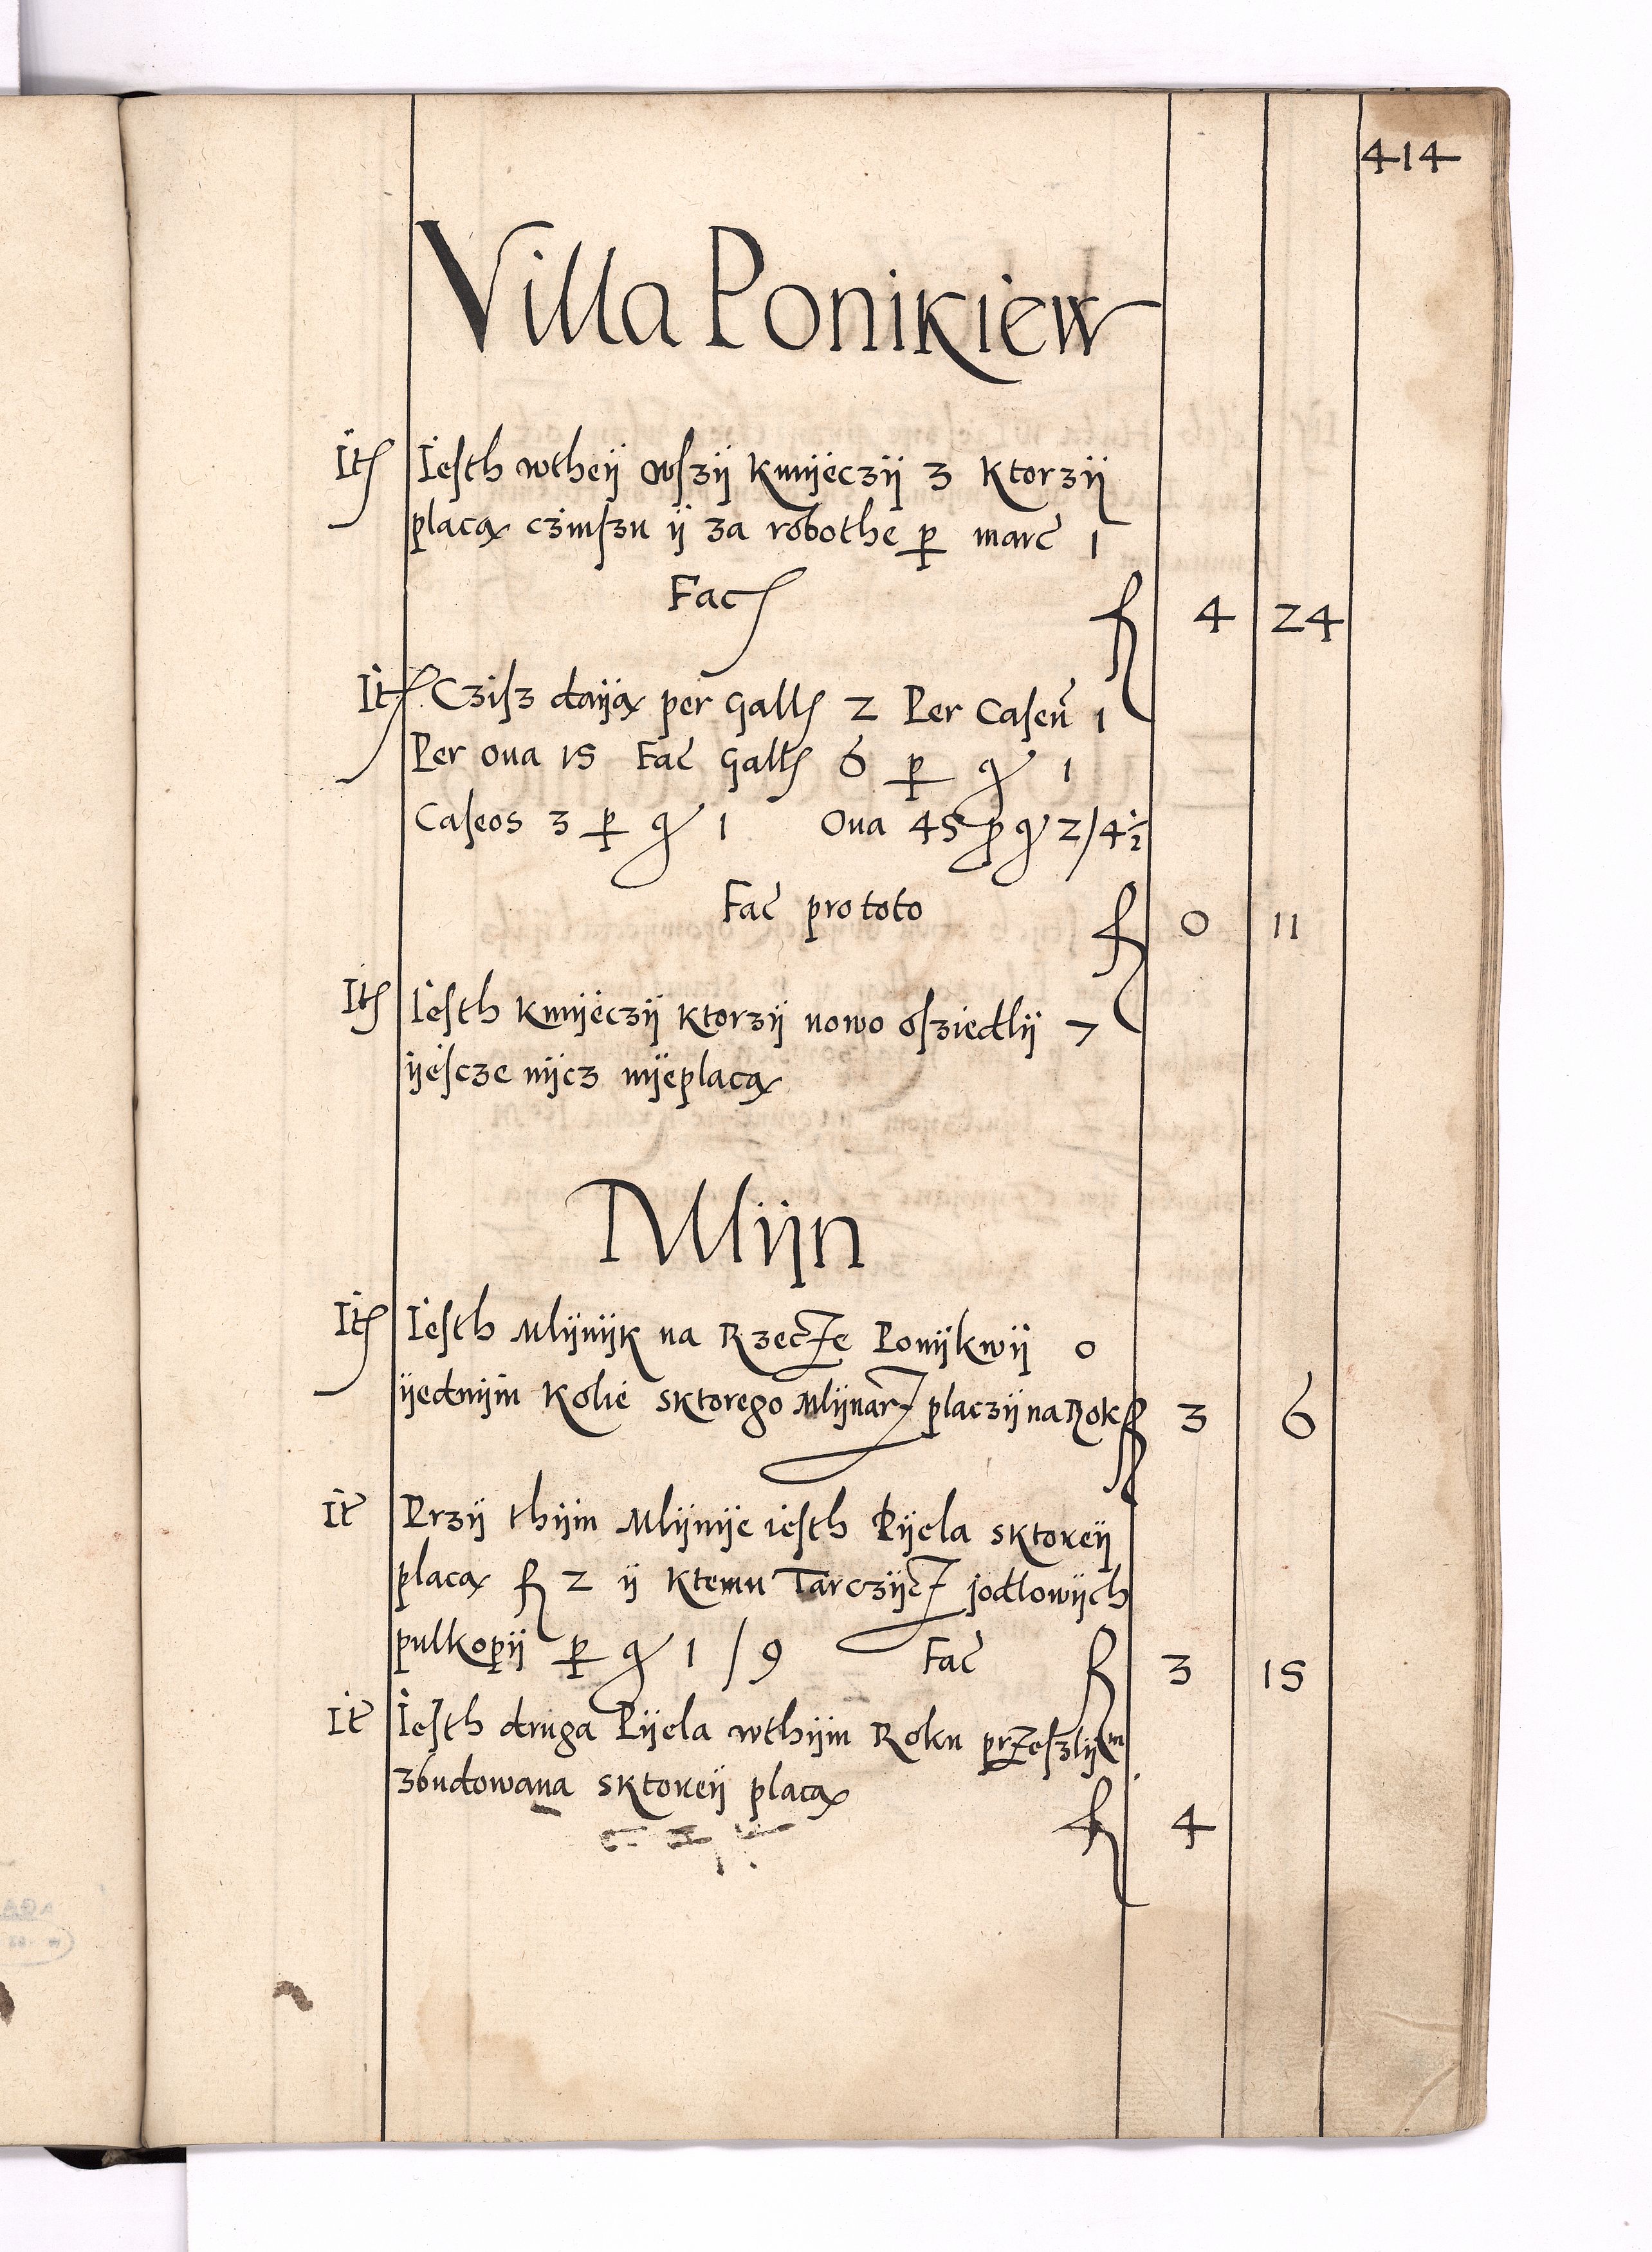 414
Villa Ponikiew
It Iesth wtheÿ wſzÿ Kmÿeczÿ 3 Ktorzÿ
placą czinſzu ÿ za robothe per marc 1
Fac f 4 24
It Cziſz daÿą per Gall 2 Per Caseu 1
Per oua 15 Fac Gall 6 per gr 1
Caseos 3 per gr 1 Oua 45 pro gr 2/4½
Fac pro toto f 0 11
It Iesth Kmÿeczÿ Ktorzÿ nowo oſziedlÿ 7
ÿescze nÿcz nÿeplacą
Mlÿn
It Iesth Mlÿnÿk na Rzecze Ponÿkwÿ o
ÿednÿm Kolie sktorego Mlÿnarz placzÿ na Rok f 3 6
It Przÿ thÿm Mlÿnÿe iesth Pÿela sktoreÿ
placą f 2 ÿ Ktemu Tarczÿcz jodlowÿch
pulkopÿ per gr 1/9 Fac f 3 15
It Iesth druga Pÿela wthÿm Roku przeſzlÿm
zbudowana sktoreÿ placą
f 4